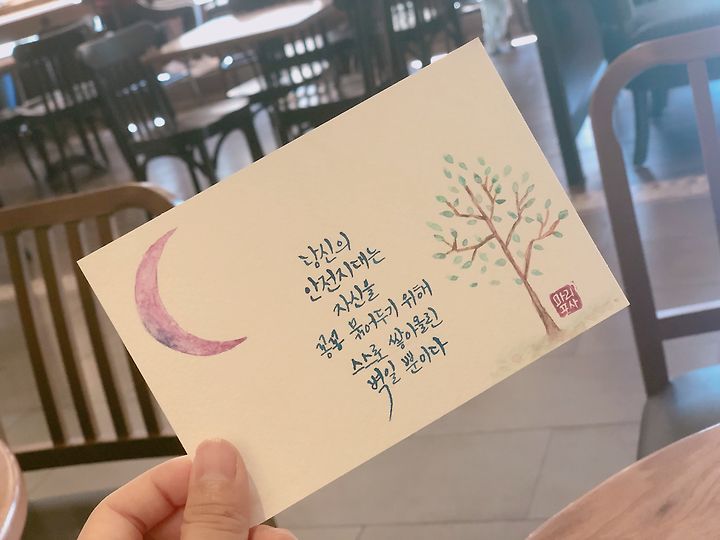 당신의
안전지대는
자신을
꽁꽁 묶어두기 위해
스스로 쌓아올린
벽일 뿐이다
마리
프사